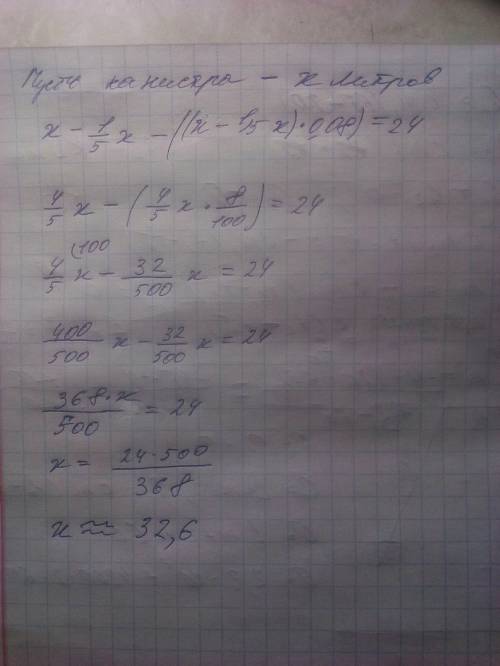 Пусть канистра - x литров
x - 1/5 x - ((x - 1/5 x) · 0,08) = 24
4/5 x - (4/5 x · 8/100) = 24
4/5 (100 x - 32/500 x = 24
400/500 x - 32/500 x = 24
368·x/500 = 24
x = 24·500/368
x ≈ 32,6